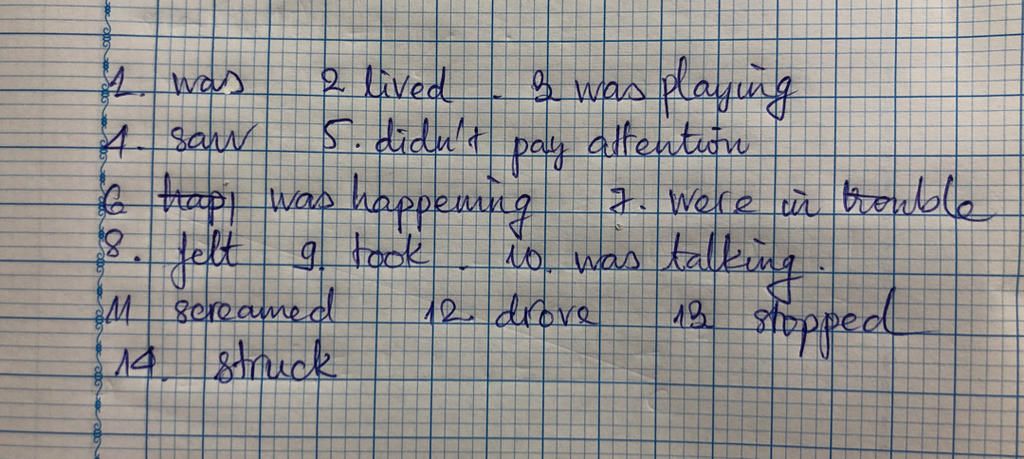 1. was 2 lived. 3 was playing
4. saw 5. didn't pay attention
6 was happening 7. were in trouble
8. felt 9. took. 10. was talking.
11 screamed 12. drove 13 stopped
14. struck